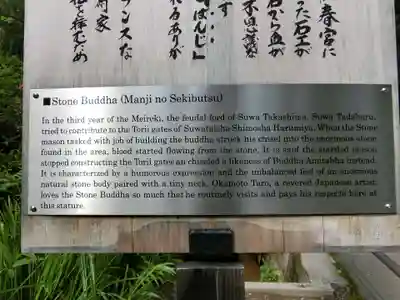 春宮に
った石工が
石から血が
不思議な
す
ばんじ」
れるありが
ンスな
術家
を拝むため
■Stone Buddha (Manji no Sekibutsu)
In the third year of the Meireki, the feudal lord of Suwa Takashima, Suwa Tadaharu,
tried to contribute to the Torii gates of Suwataisha Shimosha Harumiya. When the Stone
mason tasked with job of building the buddha struck his chisel into the enormous stone
found in the area, blood started flowing from the stone. It is said the startled mason
stopped constructing the Torii gate an chiseled a likeness of Buddha Amitabha instead.
It is characterized by a humorous expression and the unbalanced feel of an enormous
natural stone body paired with a tiny neck. Okamoto Taro, a revered Japanese artist,
loves the Stone Buddha so much that he routinely visits and pays his respects here at
this stature.